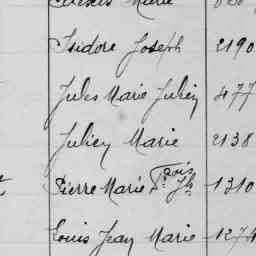 Marie
Isidore Joseph 2190
Jules Marie Julien 477
Julien Marie 2138
Pierre Marie Fçois Jh 1310
Louis Jean Marie 1274